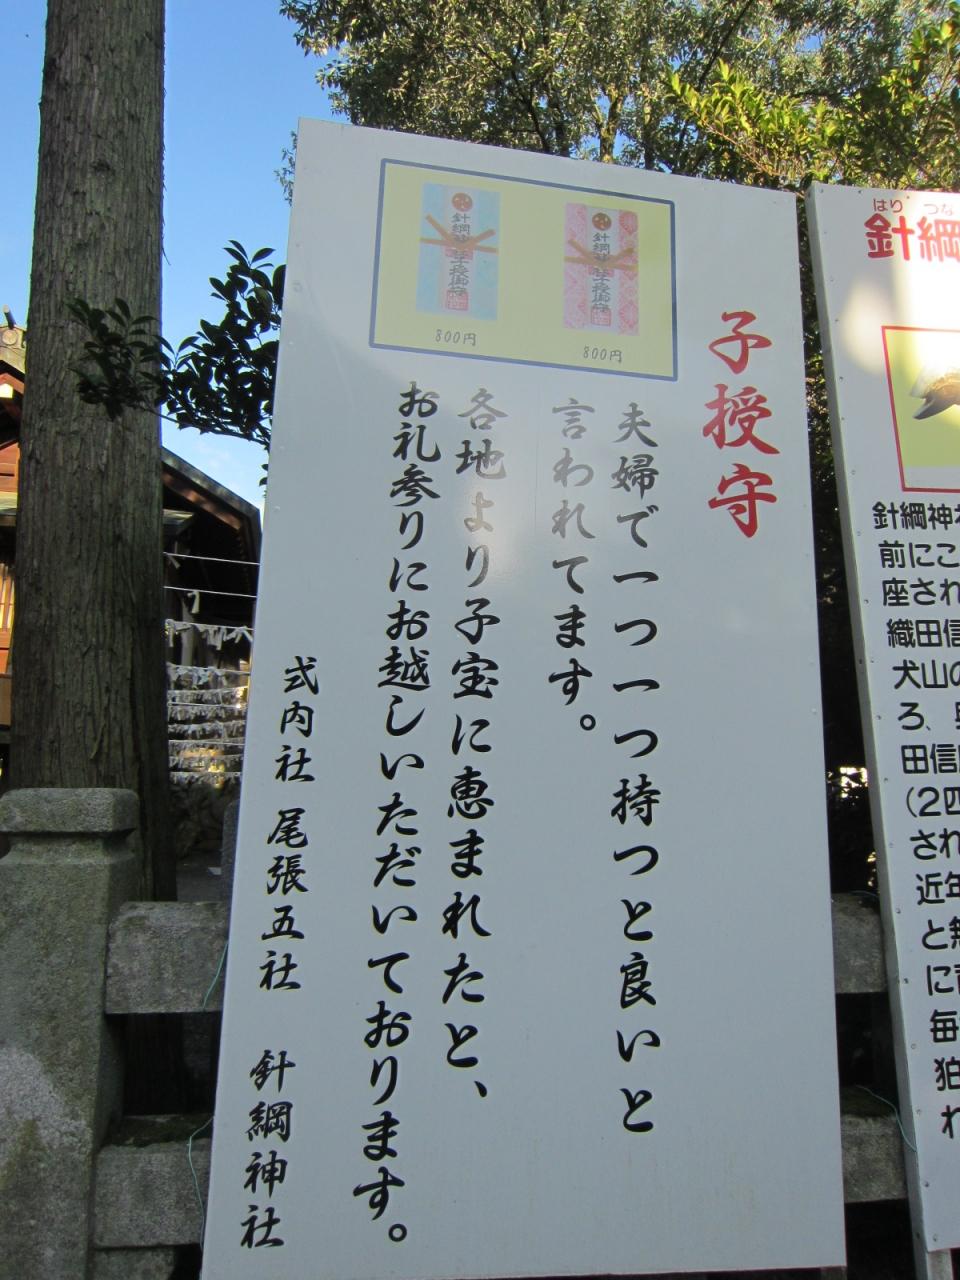 子授守
夫婦で一つ一つ持つと良いと
言われてます。
各地より子宝に恵まれたと、
お礼参りにお越しいただいております。
式内社 尾張五社 針綱神社
800円
800円
はり つな
針綱
針綱神社
前にこ
座され
織田信
犬山の
ろ、
田信
(2四
され
近年
と無
に
毎
狛
れ